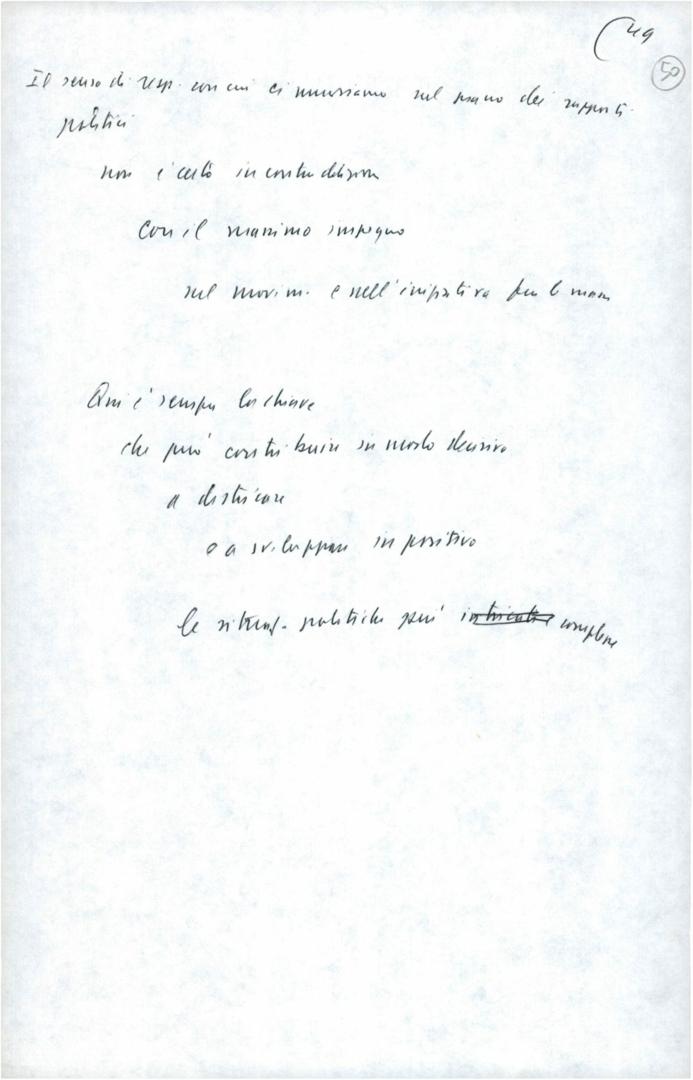 49
50
Il senso di resp. con cui ci muoviamo sul piano dei rapporti
politici
non è certo in contraddizione
con il massimo impegno
sul movim. e nell'iniziativa fra le masse
Qui è sempre la chiave
che può contribuire in modo decisivo
a districare
o a sviluppare in positivo
le situaz. politiche più intricate complesse